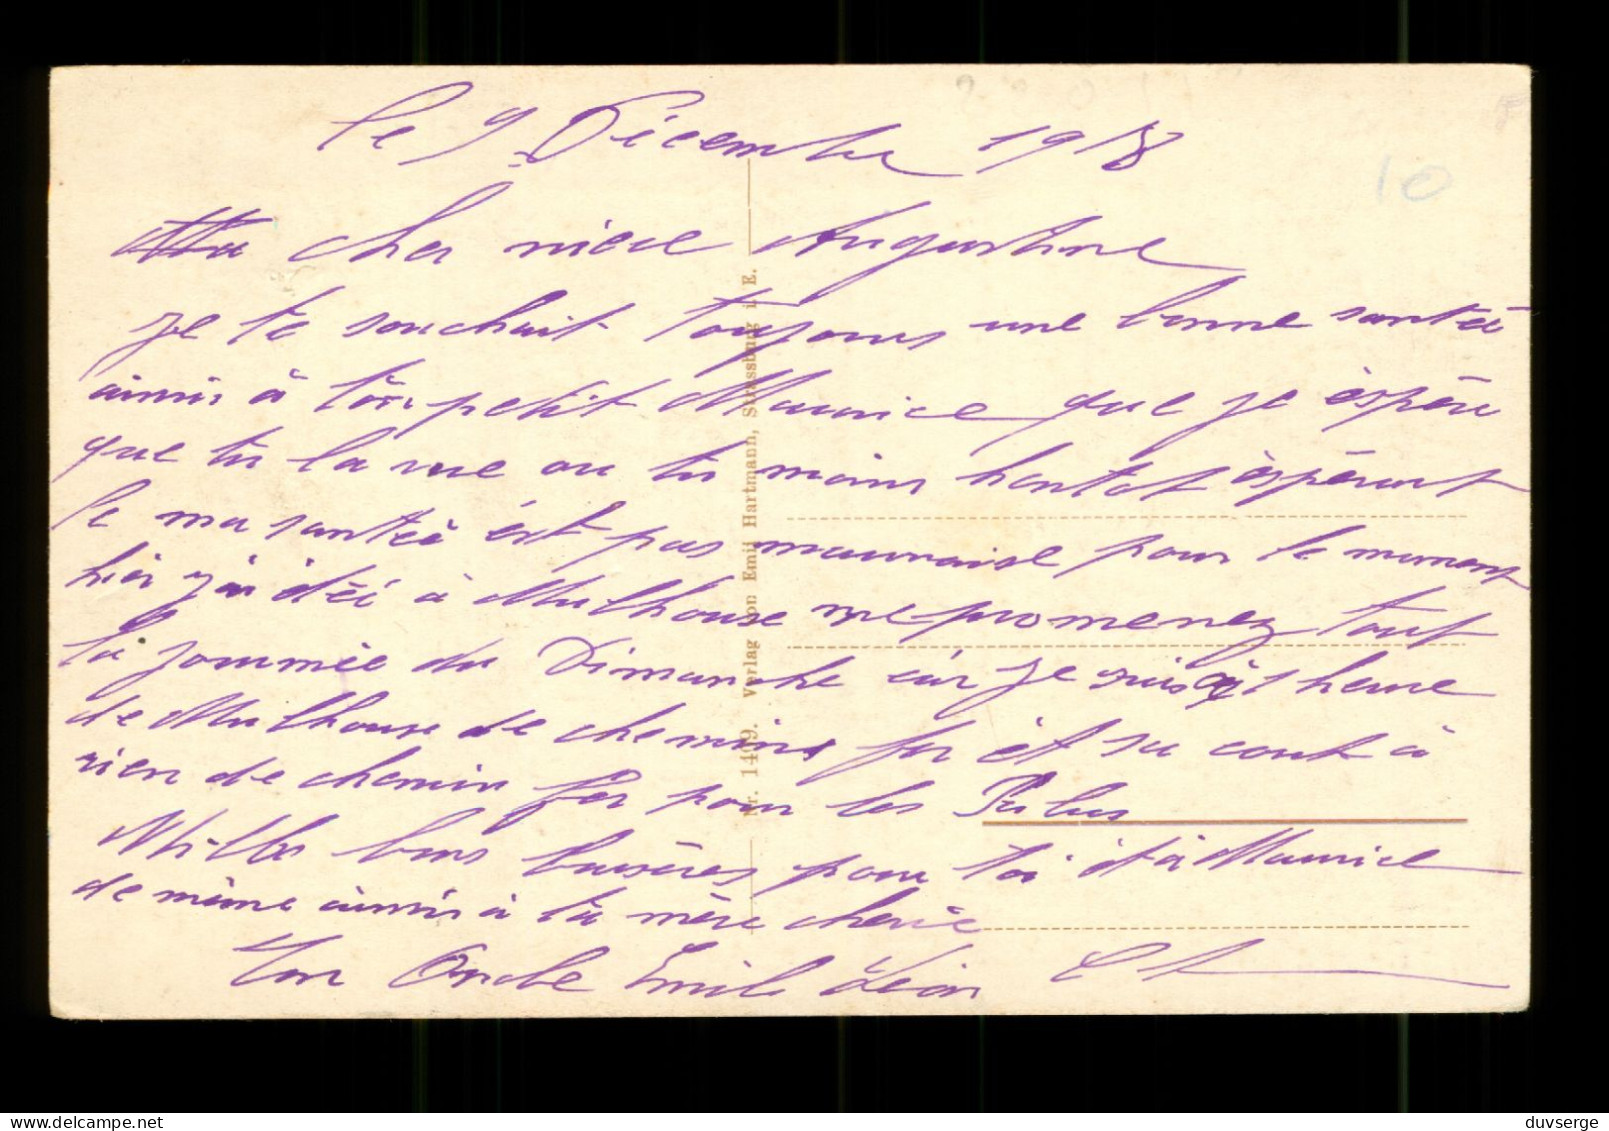 le 9 Décembre 1918
Ma cher niece Augustine
je te souchait toujours une bonne santéé
ainsi à ton petit Maurice que je éspére
que tu la vue ou tu moins bontot éspérent
le ma santéé ést pas mauvaise pour le moment
hier j'ai étéé à Mulhouse me promenez tout
la journnée du Dimanche càr je suis à 1 heure
de Mulhouse de chemins fer et sa cout à
rien de chemin fer pour les Pulus
Miller bons baséres pour toi ét à Maurice
de mème ainsi à ta mère cherie
Ton Oncle Emile Léon
Nr. 1409. Verlag von Emil Hartmann, Strassburg i. E.
10
duvserge